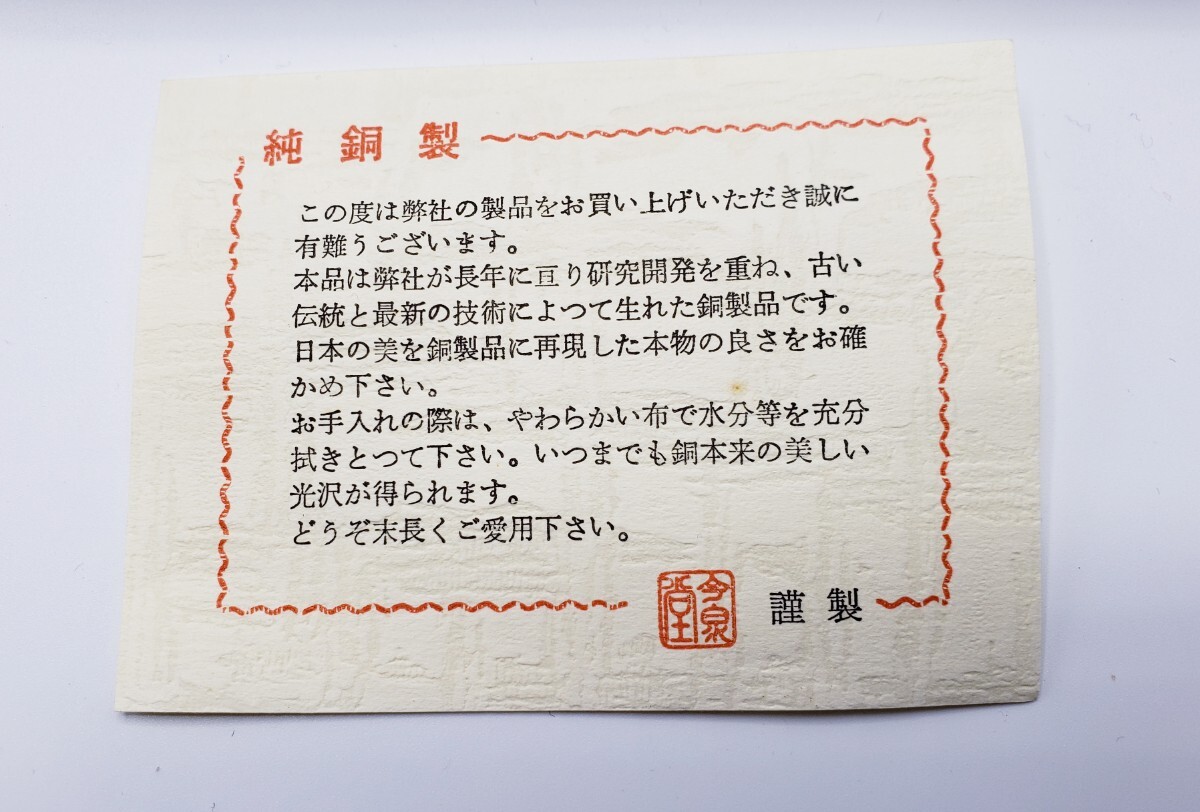 純銅製
この度は弊社の製品をお買い上げいただき誠に
有難うございます。
本品は弊社が長年に亘り研究開発を重ね、古い
伝統と最新の技術によつて生れた銅製品です。
日本の美を銅製品に再現した本物の良さをお確
かめ下さい。
お手入れの際は、やわらかい布で水分等を充分
拭きとつて下さい。いつまでも銅本来の美しい
光沢が得られます。
どうぞ末長くご愛用下さい。
今泉堂 謹製